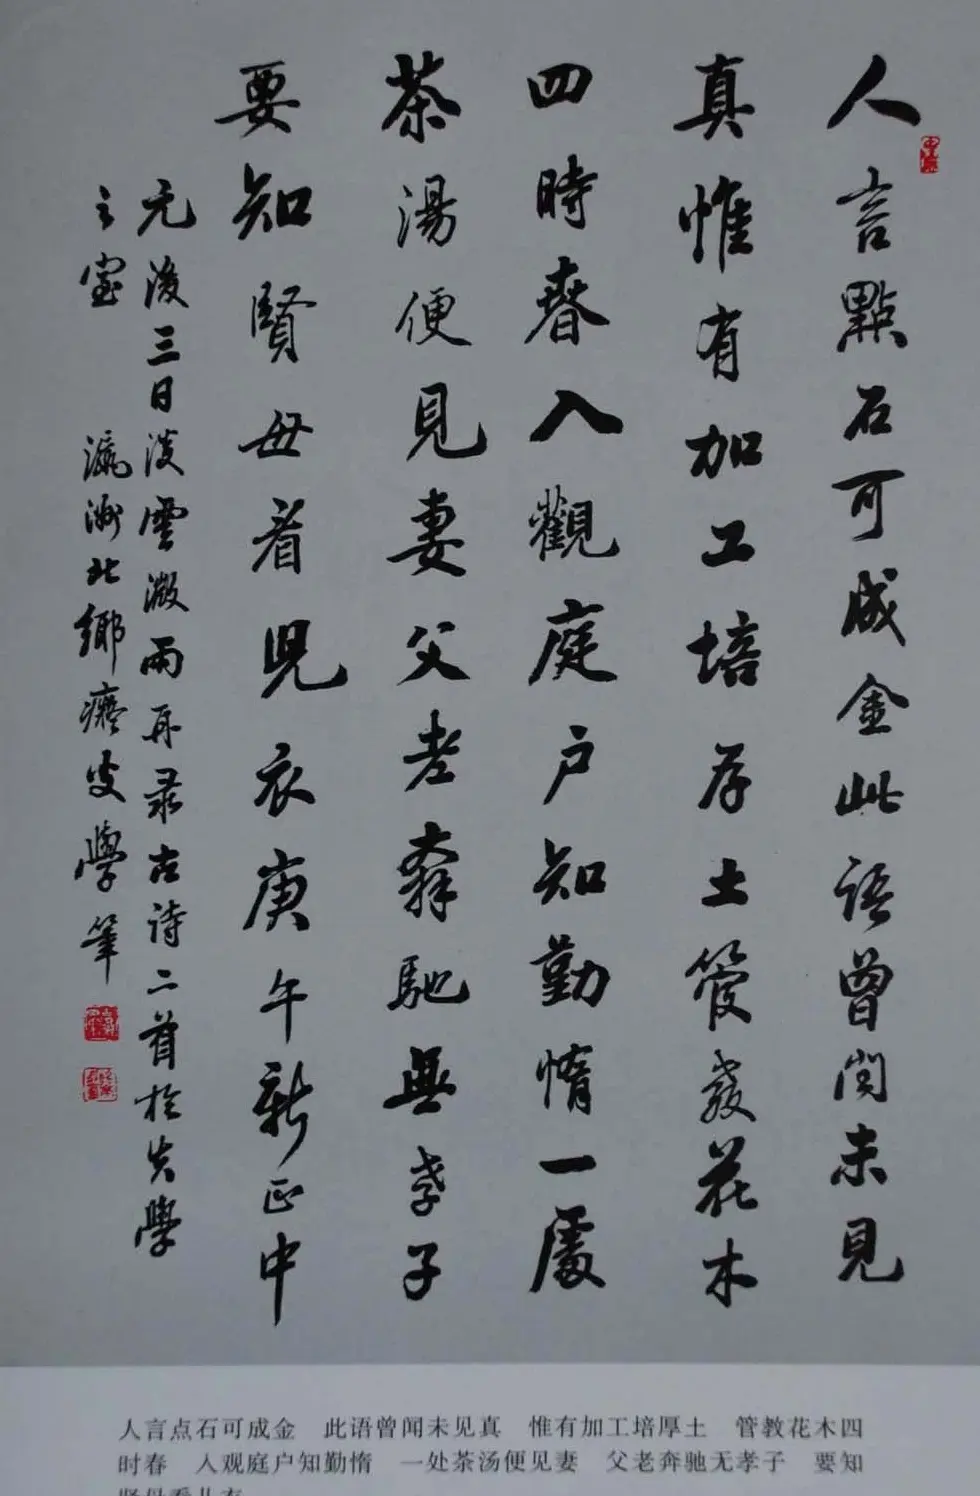 人言點石可成金此語曾闻未見
真惟有加工培厚土管教花木
四時春入觀庭户知勤惰一處
茶湯便見妻父老奔馳無孝子
要知賢母看児衣庚午新正中
元後三日淡雲微雨再录古诗二首於失學
之室
瀛洲北鄉癡叟學筆
人言点石可成金　此语曾闻未见真　惟有加工培厚土　管教花木四
时春　入观庭户知勤惰　一处茶汤便见妻　父老奔驰无孝子　要知